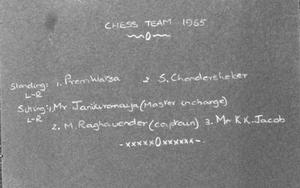 CHESS TEAM 1965
Standing: 1. Prem Watsa 2. S. Chandersheker
L-R
Sitting: 1. Mr Janikiramaiya (Master incharge)
L-R
2. M. Raghavender (captain) 3. Mr K.K. Jacob
-xxxxx0xxxxxx-